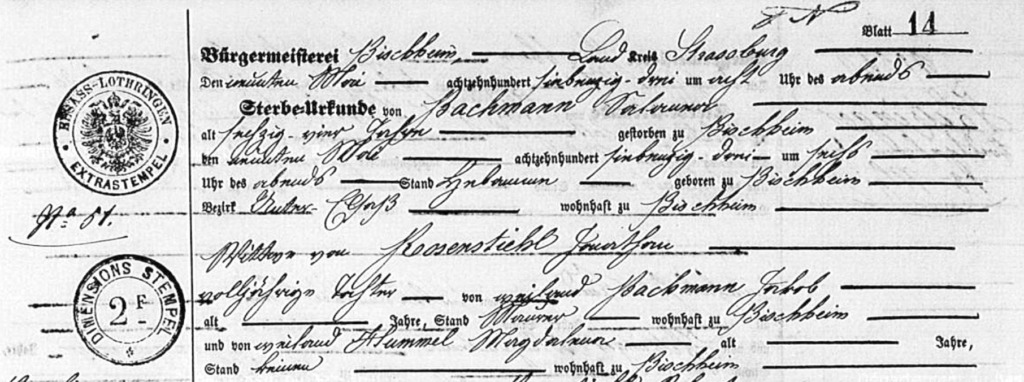 Blatt 14
Bürgermeisterei Bischheim Land Kreis Strassburg
Den neunten Mai achtzehnhundert siebenzig-drei um acht Uhr des abends
Sterbe-Urkunde von Bachmann Salomea
alt sechzig-vier Jahre gestorben zu Bischheim
den neunten Mai achtzehnhundert siebenzig-drei um sechs
Uhr des abends Stand Hebamme geboren zu Bischheim
Bezirk Unter-Elsaß wohnhaft zu Bischheim
Wittwe von Rosenstiehl Jonathan
volljährige Tochter von weiland Bachmann Jakob
alt Jahre, Stand Maurer wohnhaft zu Bischheim
und von weiland Hummel Magdalena alt Jahre,
Stand keinen wohnhaft zu Bischheim
ELSASS-LOTHRINGEN
EXTRASTEMPEL
No. 51.
DIMENSIONS STEMPEL
2 F